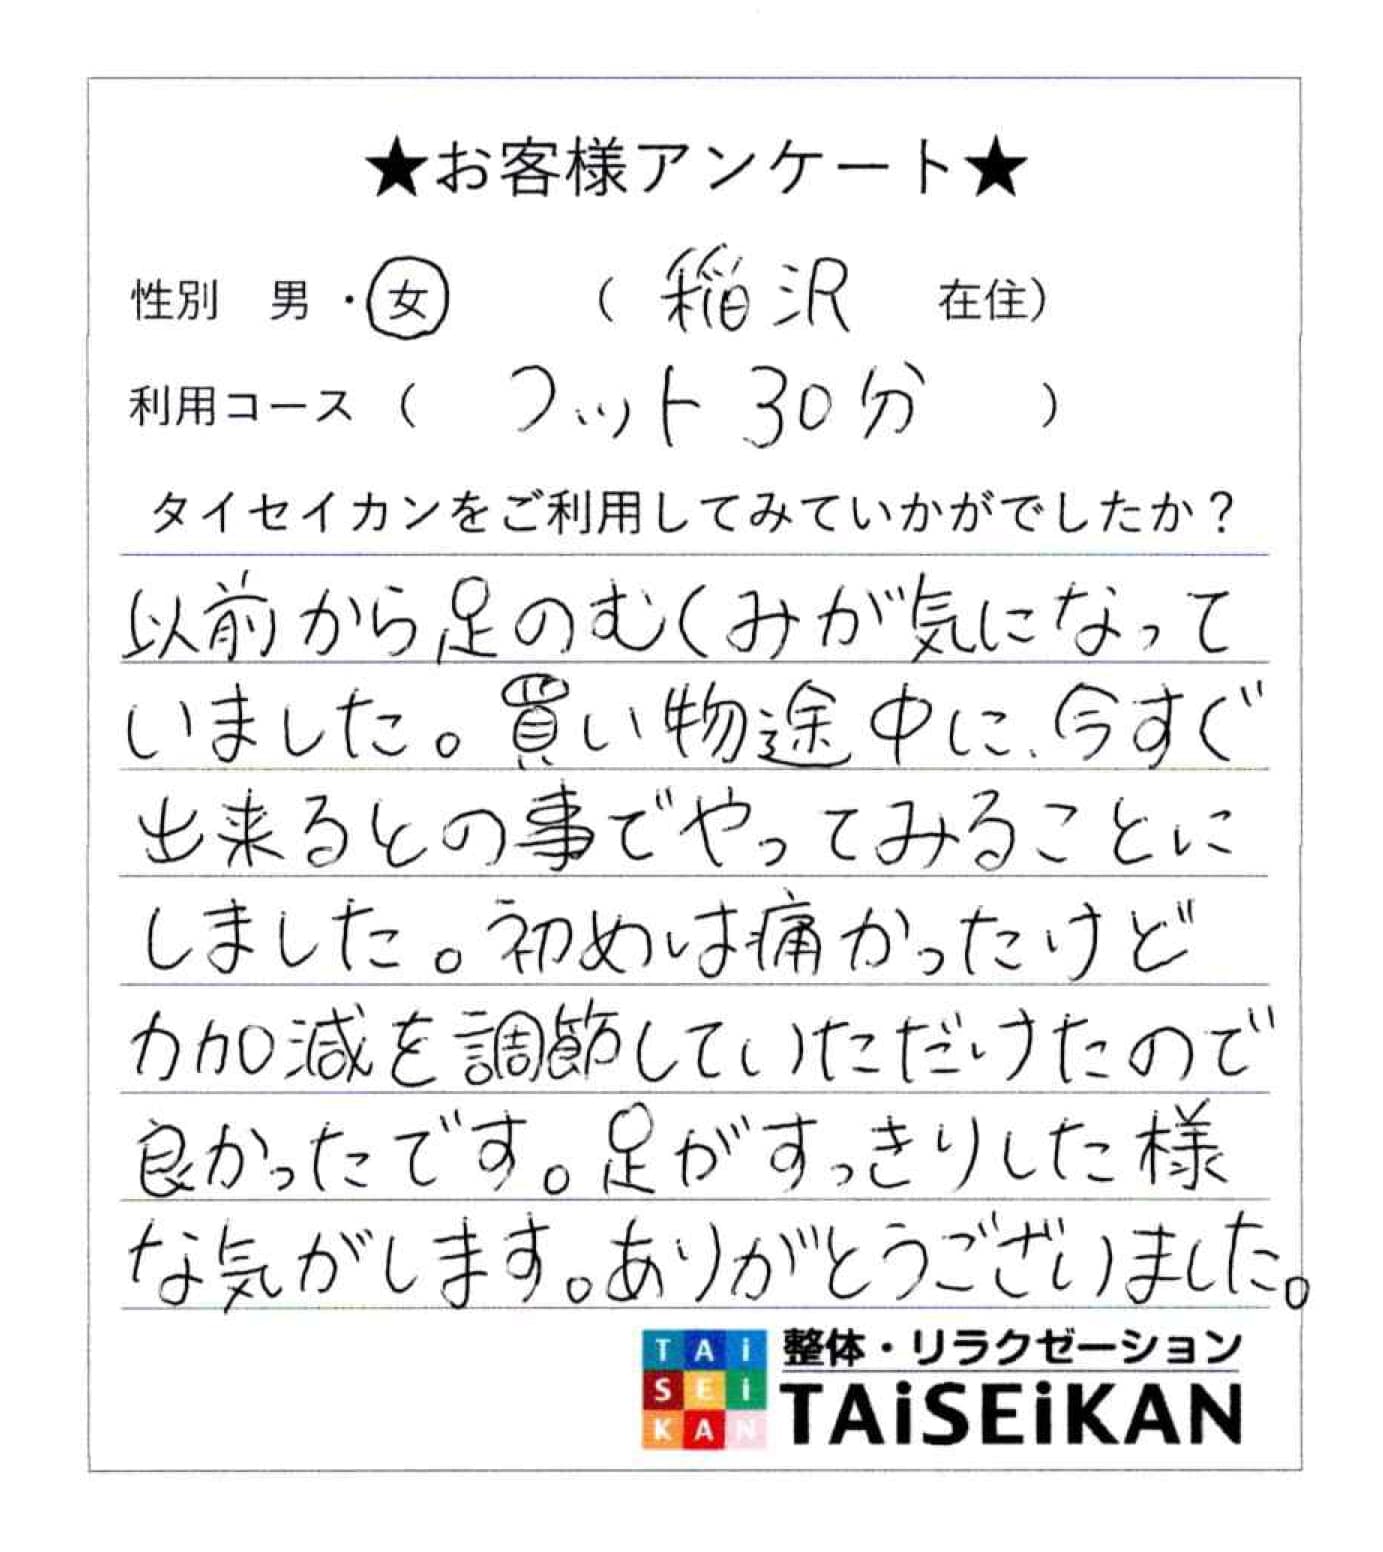 ★お客様アンケート★
性別 男・女 ( 稲沢 在住)
利用コース ( フット 30分 )
タイセイカンをご利用してみていかがでしたか？
以前から足のむくみが気になって
いました。買い物途中に、今すぐ
出来るとの事でやってみることに
しました。初めは痛かったけど
力加減を調節していただけたので
良かったです。足がすっきりした様
な気がします。ありがとうございました。
TAiSEiKAN 整体・リラクゼーション
TAiSEiKAN